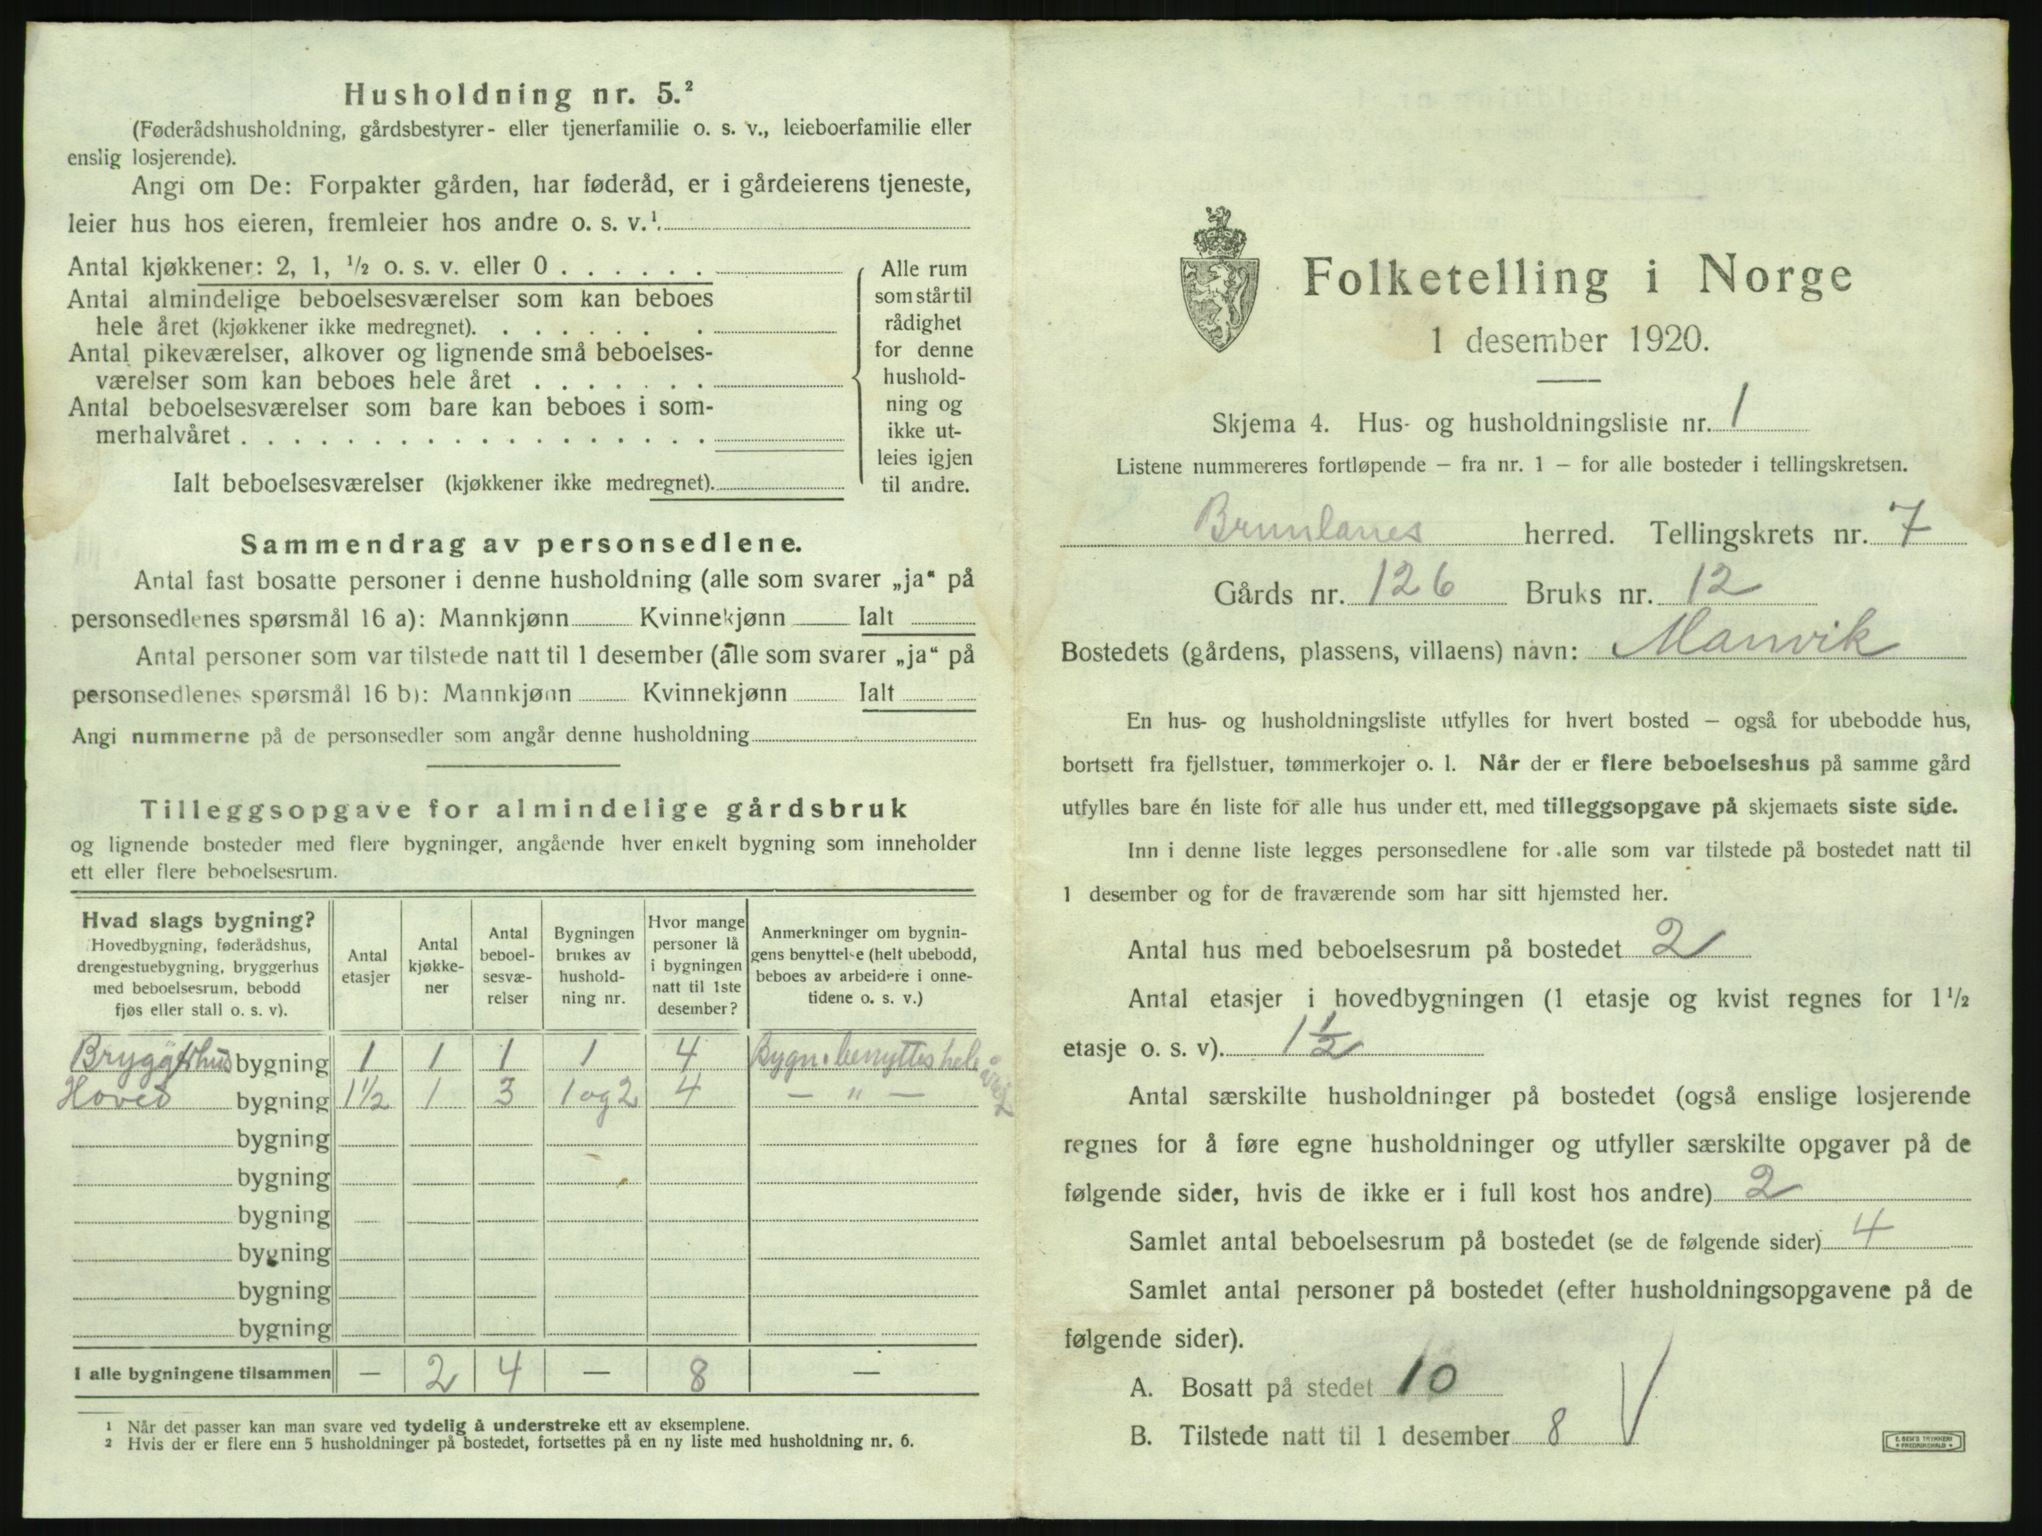 Husholdning nr. 5.²
(Føderådshusholdning, gårdsbestyrer- eller tjenerfamilie o. s. v., leieboerfamilie eller
enslig losjerende).
Angi om De: Forpakter gården, har føderåd, er i gårdeierens tjeneste,
leier hus hos eieren, fremleier hos andre o. s. v.¹.
Antal kjøkkener: 2, 1, ½ o. s. v. eller 0 . . . . . .
Antal almindelige beboelsesværelser som kan beboes
hele året (kjøkkener ikke medregnet). . . . . . . .
Antal pikeværelser, alkover og lignende små beboelses-
værelser som kan beboes hele året . . . . . . .
Antal beboelsesværelser som bare kan beboes i som-
merhalvåret . . . . . . . . . . . . . . . . . .
Ialt beboelsesværelser (kjøkkener ikke medregnet).
Alle rum
som står til
rådighet
for denne
hushold-
ning og
ikke ut-
leies igjen
til andre.
Sammendrag av personsedlene.
Antal fast bosatte personer i denne husholdning (alle som svarer „ja“ på
personsedlenes spørsmål 16 a): Mannkjønn Kvinnekjønn Ialt
Antal personer som var tilstede natt til 1 desember (alle som svarer „ja“ på
personsedlenes spørsmål 16 b): Mannkjønn Kvinnekjønn Ialt
Angi nummerne på de personsedler som angår denne husholdning
Tilleggsopgave for almindelige gårdsbruk
og lignende bosteder med flere bygninger, angående hver enkelt bygning som inneholder
ett eller flere beboelsesrum.
Hvad slags bygning?
Hovedbygning, føderådshus,
drengestuebygning, bryggerhus
med beboelsesrum, bebodd
fjøs eller stall o. s. v).
Antal
etasjer
Antal
kjøkke-
ner
Antal
beboel-
sesvæ-
relser
Bygningen
brukes av
hushold-
ning nr.
Hvor mange
personer lå
i bygningen
natt til 1ste
desember?
Anmerkninger om bygnin-
gens benyttelse (helt ubebodd,
beboes av arbeidere i onne-
tidene o. s. v.)
Bryggerhus bygning 1 1 1 1 4 Bygn. benyttes hele året
Hoved bygning 1½ 1 3 1 og 2 4 — „ —
bygning
bygning
bygning
bygning
bygning
bygning
I alle bygningene tilsammen — 2 4 — 8 —
¹ Når det passer kan man svare ved tydelig å understreke ett av eksemplene.
² Hvis der er flere enn 5 husholdninger på bostedet, fortsettes på en ny liste med husholdning nr. 6.
Folketelling i Norge
1 desember 1920.
Skjema 4. Hus- og husholdningsliste nr. 1
Listene nummereres fortløpende – fra nr. 1 – for alle bosteder i tellingskretsen.
Brunlanes herred. Tellingskrets nr. 7
Gårds nr. 126 Bruks nr. 12
Bostedets (gårdens, plassens, villaens) navn: Manvik
En hus- og husholdningsliste utfylles for hvert bosted – også for ubebodde hus,
bortsett fra fjellstuer, tømmerkojer o. l. Når der er flere beboelseshus på samme gård
utfylles bare én liste for alle hus under ett, med tilleggsopgave på skjemaets siste side.
Inn i denne liste legges personsedlene for alle som var tilstede på bostedet natt til
1 desember og for de fraværende som har sitt hjemsted her.
Antal hus med beboelsesrum på bostedet 2
Antal etasjer i hovedbygningen (1 etasje og kvist regnes for 1½
etasje o. s. v). 1½
Antal særskilte husholdninger på bostedet (også enslige losjerende
regnes for å føre egne husholdninger og utfyller særskilte opgaver på de
følgende sider, hvis de ikke er i full kost hos andre) 2
Samlet antal beboelsesrum på bostedet (se de følgende sider) 4
Samlet antal personer på bostedet (efter husholdningsopgavene på de
følgende sider).
A. Bosatt på stedet 10
B. Tilstede natt til 1 desember 8